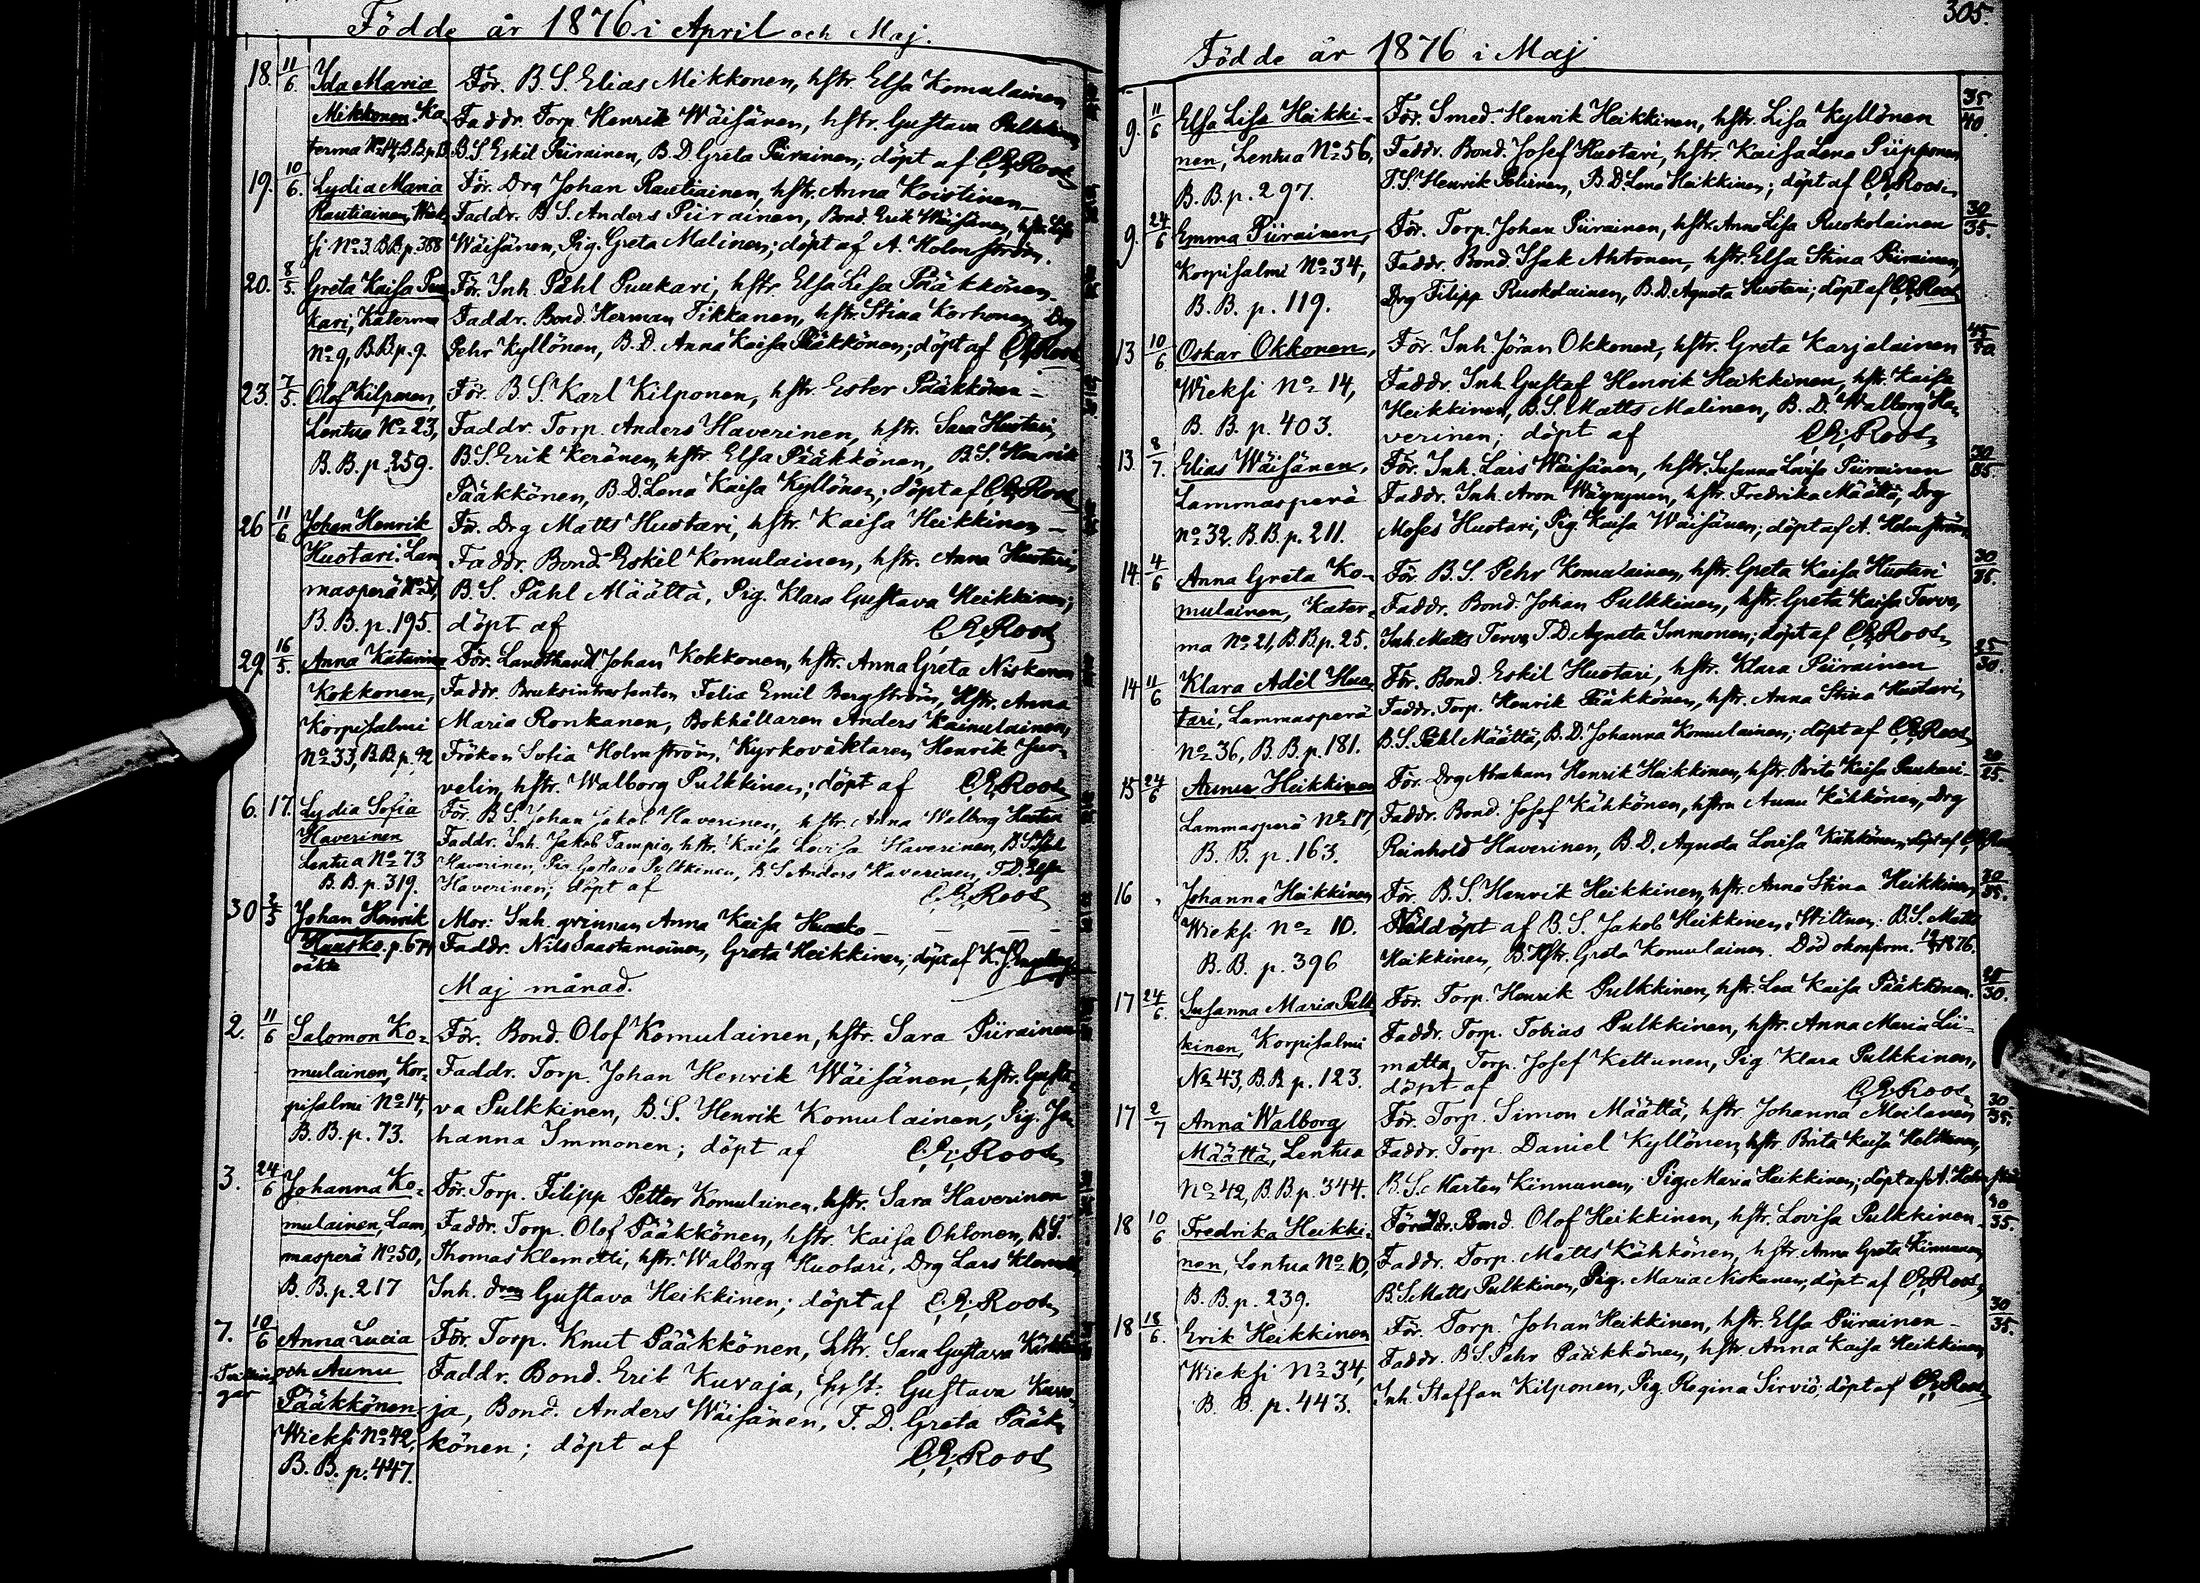 Födde år 1876 i April och Maj.
18. 11/6 Ida Maria För. B. S. Elias Mikkonen, hstr. Elsa Komulainen
Mikkonen Ka- Faddr. Torp. Henrik Wäisänen, hstr. Gustava Pulkkinen
terma No 14, B.B.p. 13 B.S. Eskil Piirainen, B.D. Greta Piirainen; döpt af C.E. Roos
19. 10/6 Lydia Maria För. Drg Johan Rautiainen, hstr. Anna Koistinen
Rautiainen, Wiek- Faddr. B.S. Anders Piirainen, Bond. Erik Wäisänen, hstr. Lisa
si No 3. B.B.p. 388 Wäisänen, Pig. Greta Malinen; döpt af A. Holmström.
20. 8/5 Greta Kaisa Puu- För. Inh. Påhl Puukari, hstr. Elsa Lisa Pääkkönen
kari, Katerma Faddr. Bond. Herman Tikkanen, hstr. Stina Korhonen, Drg
No 9, B.B.p. 9. Pehr Kyllönen, B.D. Anna Kaisa Pääkkönen; döpt af C.E. Roos
23. 7/5 Olof Kilponen, För. B.S. Karl Kilponen, hstr. Ester Pääkkönen
Lentua No 23, Faddr. Torp. Anders Haverinen, hstr. Sara Huotari,
B.B.p. 259. B.S. Erik Keränen, hstr. Elsa Pääkkönen, B.S. Henrik
Pääkkönen, B.D. Lena Kaisa Kyllönen; döpt af C.E. Roos
26 11/6 Johan Henrik För. Drg Matts Huotari, hstr. Kaisa Heikkinen
Huotari. Lam- Faddr. Bond. Eskil Komulainen, hstr. Anna Huotari,
masperä No 51, B.S. Påhl Määttä, Pig. Klara Gustava Heikkinen;
B.B.p. 195. döpt af C.E. Roos
29. 16/5 Anna Katarina För. Landthand. Johan Kokkonen, hstr. Anna Greta Niskanen
Kokkonen, Faddr. Bruksintressenten Felix Emil Bergström, Hstr. Anna
Korpisalmi Maria Ronkanen, Bokhållaren Anders Kainulainen,
No 33, B.B.p. 92 Fröken Sofia Holmström, Kyrkoväktaren Henrik Jur-
velin, hstr. Walborg Pulkkinen; döpt af C.E. Roos
6. 17. Lydia Sofia För. B.S. Johan Jakob Haverinen, hstr. Anna Walborg Huotari
Haverinen Faddr. Inh. Jakob Tampio, hstr. Kaisa Lovisa Haverinen, B.S.
Lentua No 73 Haverinen, Pig. Gustava Pulkkinen, B.S. Anders Haverinen, T.D. Elsa
B.B.p. 319. Haverinen; döpt af C.E. Roos
30 2/5 Johan Henrik Mor: Inh. qvinnan Anna Kaisa Huusko
Huusko. p. 674 Faddr. Nils Saastamoinen, Greta Heikkinen; döpt af K.
oäkta
Maj månad.
2. 11/6 Salomon Ko- För. Bond. Olof Komulainen, hstr. Sara Piirainen
mulainen, Kor- Faddr. Torp. Johan Henrik Wäisänen, hstr. Gusta-
pisalmi No 14, va Pulkkinen, B.S. Henrik Komulainen, Pig. Jo-
B.B.p. 73. hanna Immonen; döpt af C.E. Roos
3. 24/6 Johanna Ko- För. Torp. Filipp Petter Komulainen, hstr. Sara Haverinen
mulainen, Lam- Faddr. Torp. Olof Pääkkönen, hstr. Kaisa Ohtonen, B.S.
masperä No 50, Thomas Klemetti, hstr. Walborg Huotari, Drg Lars Klemetti,
B.B.p. 217 Inh. Gustava Heikkinen; döpt af C.E. Roos
7. 10/6 Anna Lucia För. Torp. Knut Pääkkönen, hstr. Sara Gustava
Tvillin- och Aunu Faddr. Bond. Erik Kuvaja, hstr. Gustava Kuva-
gar Pääkkönen ja, Bond. Anders Wäisänen, T.D. Greta Pääk-
Wieksi No 42, könen; döpt af C.E. Roos
B.B.p. 447.
305.
Födde år 1876 i Maj
9. 11/6 Elsa Lisa Heikki- För. Smed. Henrik Heikkinen, hstr. Lisa Kyllönen 35/40
nen, Lentua No 56, Faddr. Bond. Josef Huotari, hstr. Kaisa Lena Piipponen
B.B.p. 297. T.S. Henrik Polvinen, B.D. Lena Heikkinen; döpt af C.E. Roos
9. 24/6 Emma Piirainen, För. Torp. Johan Piirainen, hstr. Anna Lisa Ruokolainen 30/35.
Korpisalmi No 34, Faddr. Bond. Isak Ahtonen, hstr. Elsa Stina Piirainen,
B.B. p. 119. Drg Filipp Ruokolainen, B.D. Agneta Huotari; döpt af C.E. Roos
13 10/6 Oskar Okkonen, För. Inh. Jöran Okkonen, hstr. Greta Karjalainen 45/50
Wieksi No 14, Faddr. Inh. Gustaf Henrik Heikkinen, hstr. Kaisa
B.B.p. 403. Heikkinen, B.S. Matts Malinen, B.D. Walborg Ha-
verinen; döpt af C.E. Roos
13. 8/7. Elias Wäisänen, För. Inh. Lars Wäisänen, hstr. Susanna Lovisa Piirainen 30/35.
Lammasperä Faddr. Inh. Aron Wäyrynen, hstr. Fredrika Määttä, Drg
No 32. B.B.p. 211. Moses Huotari, Pig. Kaisa Wäisänen; döpt af A. Holmström
14. 4/6 Anna Greta Ko- För. B.S. Pehr Komulainen, hstr. Greta Kaisa Huotari 30/35.
mulainen, Kater- Faddr. Bond. Johan Pulkkinen, hstr. Greta Kaisa Tervo,
ma No 21, B.B.p. 25. Inh. Matts Tervo, T.D. Agneta Immonen; döpt af C.E. Roos
14 11/6 Klara Adél Huo- För. Bond. Eskil Huotari, hstr. Klara Piirainen 25/30.
tari, Lammasperä Faddr. Torp. Henrik Pääkkönen, hstr. Anna Stina Huotari,
No 36, B.B.p. 181. B.S. Påhl Määttä, B.D. Johanna Komulainen; döpt af C.E. Roos
15 24/6 Aunu Heikkinen För. Drg Abraham Henrik Heikkinen, hstr. Brita Kaisa Puukari 20/25.
Lammasperä No 17, Faddr. Bond. Josef Kähkönen, hstru Aunu Kähkönen, Drg
B.B. p. 163. Reinhold Haverinen, B.D. Agneta Lovisa Kähkönen; döpt af C.E. Roos
16 Johanna Heikkinen För. B.S. Henrik Heikkinen, hstr. Anna Stina Heikkinen, 30/35.
Wieksi No 10. Nöddöpt af B.S. Jakob Heikkinen. Wittnen: B.S. Matts
B.B. p. 396 Heikkinen, B.Hstr. Greta Komulainen. Död okonfirm. 1876.
17 24/6. Susanna Maria Pulk- För. Torp. Henrik Pulkkinen, hstr. Lea Kaisa Pääkkönen. /30.
kinen, Korpisalmi Faddr. Torp. Tobias Pulkkinen, hstr. Anna Maria Lii-
No 43, B.B.p. 123. matta, Torp. Josef Kettunen, Pig Klara Pulkkinen,
döpt af C.E. Roos
17 2/7 Anna Walborg För. Torp. Simon Määttä, hstr. Johanna Moilanen 30/35.
Määttä, Lentua Faddr. Torp. Daniel Kyllönen, hstr. Brita Kaisa
No 42, B.B.p. 344. B.S. Marten Kinnunen, Pig. Maria Heikkinen; döpt af A. Holmström
18 10/6 Fredrika Heikki- För. Bond. Olof Heikkinen, hstr. Lovisa Pulkkinen 40/35.
nen, Lentua No 10, Faddr. Torp. Matts Kähkönen, hstr. Anna Greta Kinnunen,
B.B.p. 239. B.S. Matts Pulkkinen, Pig. Maria Niskanen; döpt af C.E. Roos
18 18/6. Erik Heikkinen För. Torp. Johan Heikkinen, hstr. Elsa Piirainen 30/35.
Wieksi No 34, Faddr. B.S. Pehr Pääkkönen, hstr Anna Kaisa Heikkinen,
B.B. p. 443. Inh. Staffan Kilponen, Pig. Regina Sirviö; döpt af C.E. Roos